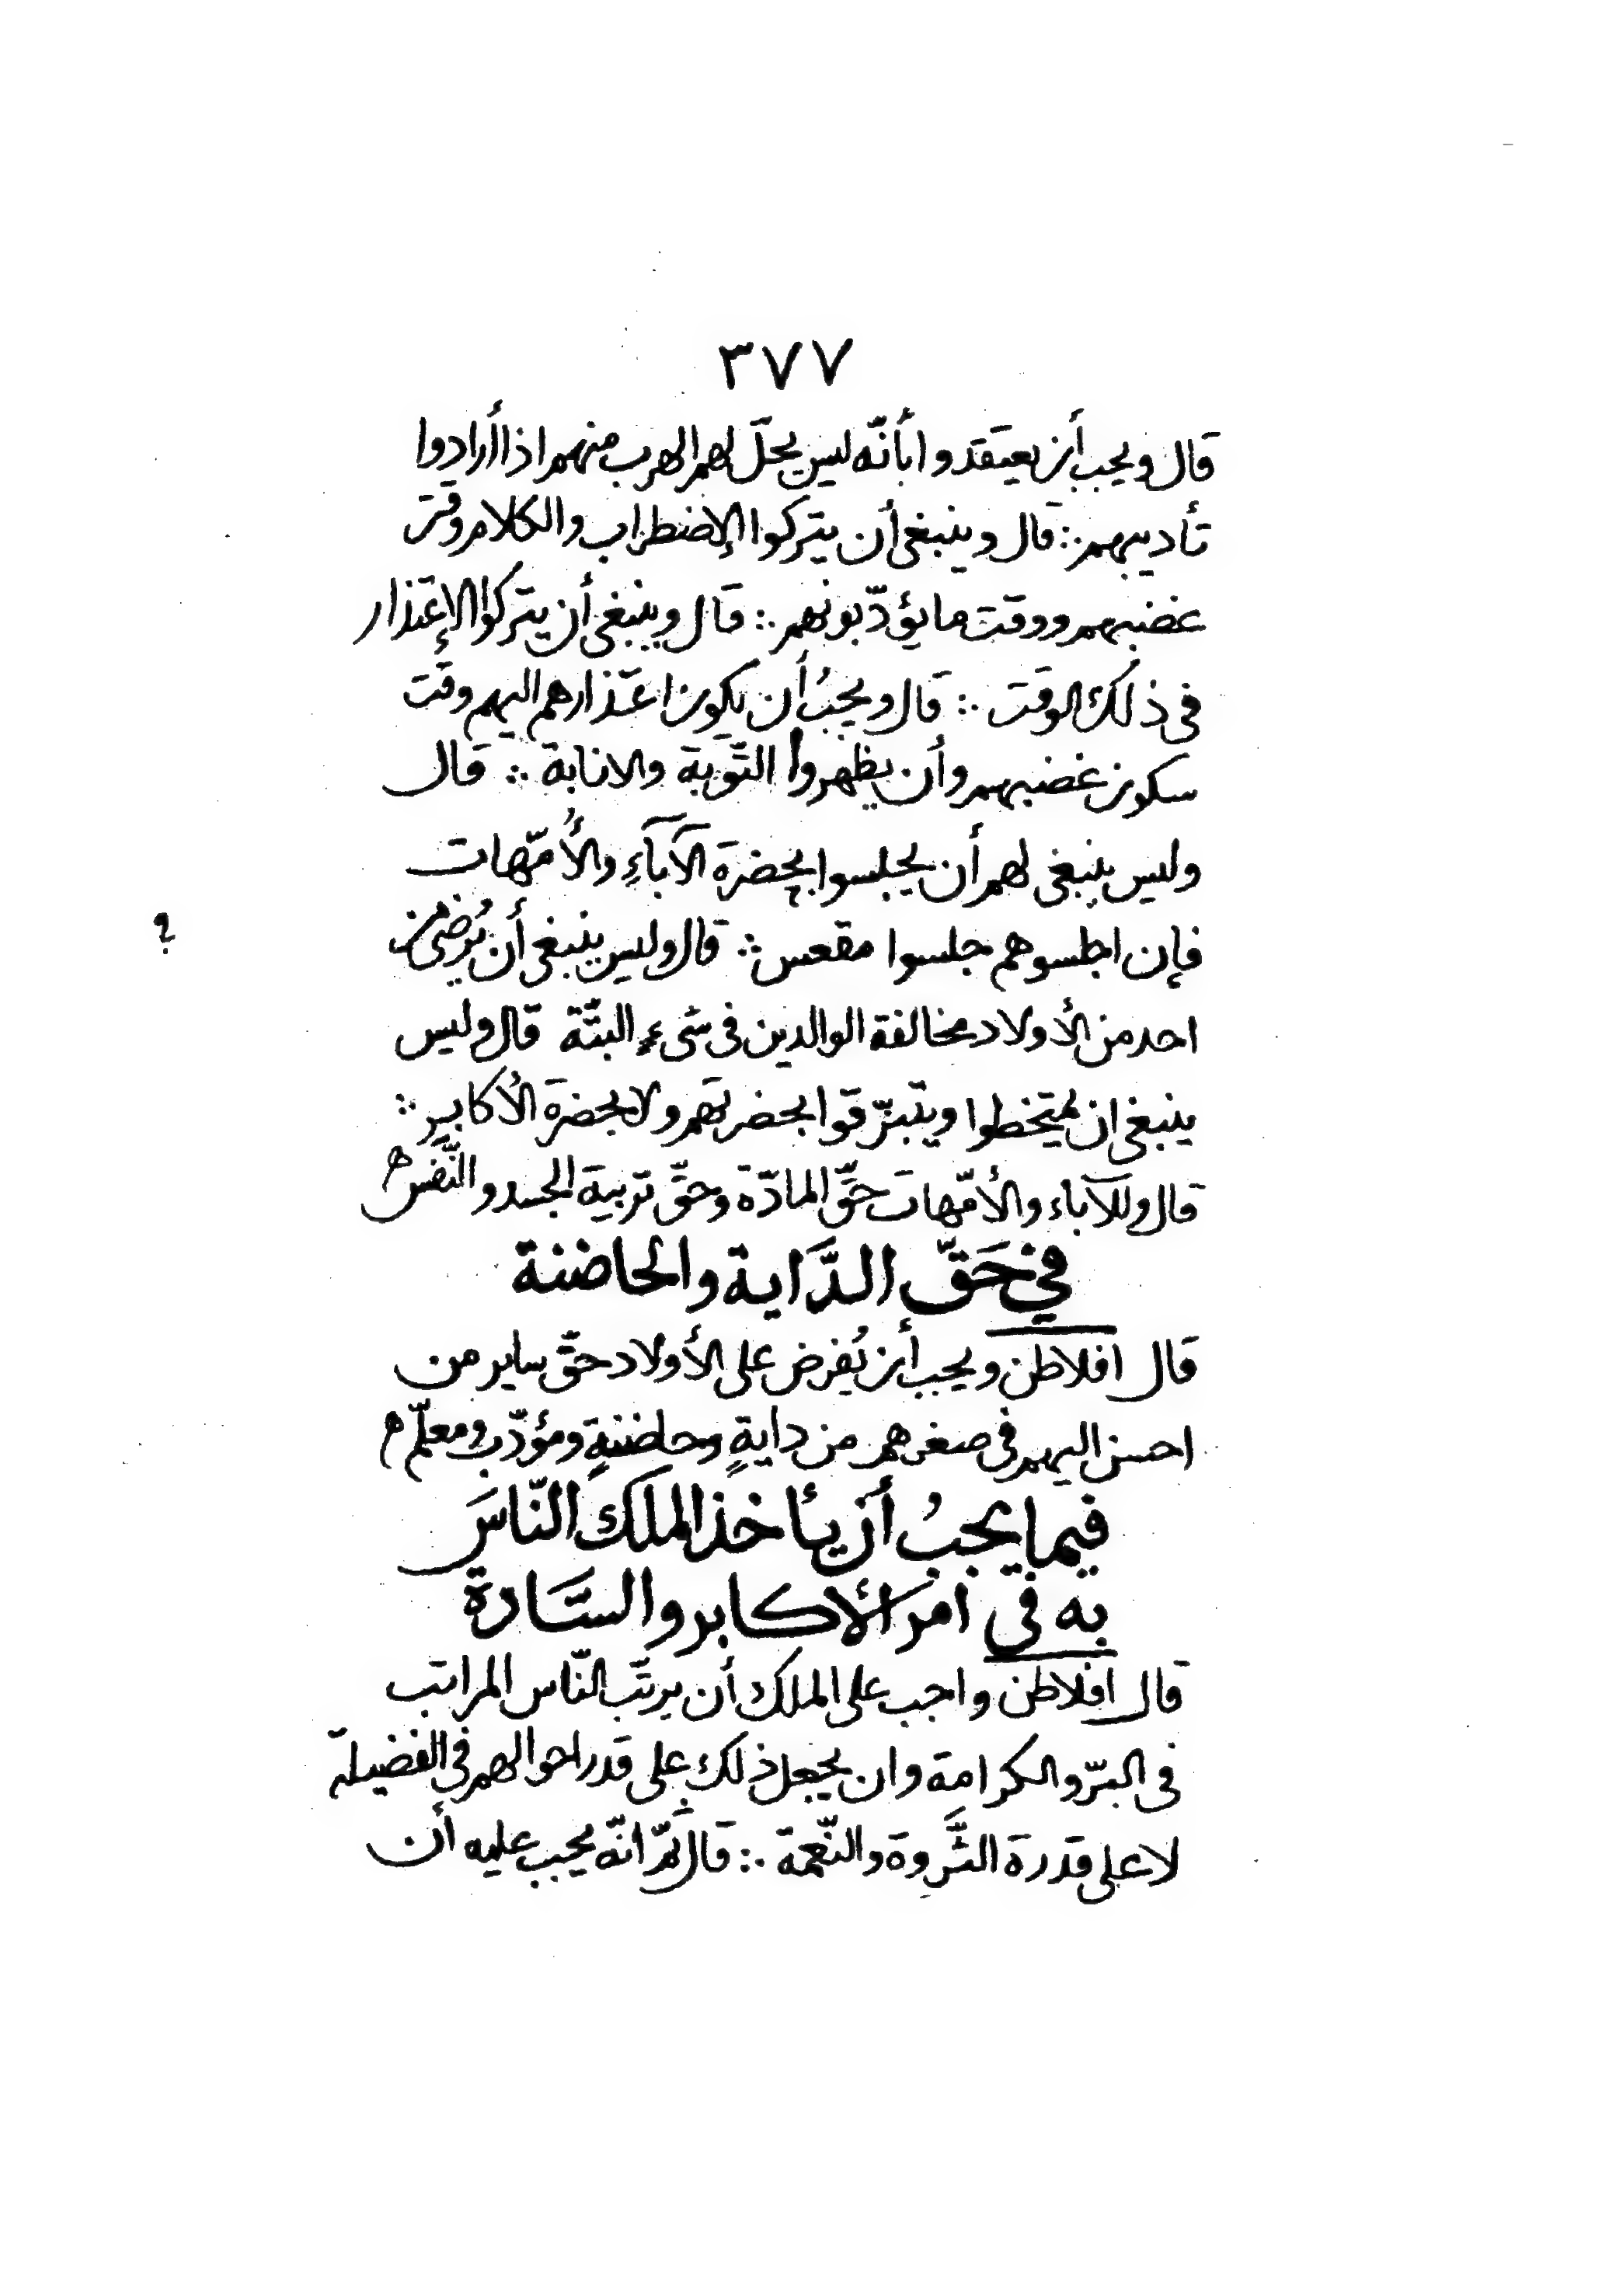 ٣٧٧
قال ويجب أن يعتقدوا بأنّه ليس يحلّ لهم الهرب منهم اذا أرادوا
تأديبهم ∴ قال وينبغى أن يتركوا الإضطراب والكلام وقت
غضبهم ووقت ما يؤدّبونهم ∴ قال وينبغى أن يتركوا الإعتذار
فى ذلك الوقت ∴ قال ويجبُ أن يكون اعتذارهم اليهم وقت
سكون غضبهم وأن يظهروا التّوبة والانابة ∴ قال
وليس ينبغى لهم أن يجلسوا بحضرة الآباءِ والأُمّهات
فإن اجلسوهم جلسوا مقعس ∴ قال وليس ينبغى أن يُرضى من
؟
احد من الأولاد مخالفة الوالدين فى شىءٍ البتّة قال وليس
ينبغى ان يمتخطوا ويتبزّقوا بحضرتهم ولا بحضرة الأكابرِ ∴
قال وللآباء والأمّهات حقّ المادّة وحقّ تربية الجسد والنّفس ه
في حَقّ الدَّاية والحاضنة
قال افلاطن ويجب أن يُفرض على الأولاد حقّ ساير من
احسن اليهم فى صغرهم من دايةٍ وحاضنةٍ ومؤدّب ومعلّم ه
فيما يجبُ أن يأخذ الملك النّاسَ
به فى امر الأكابر والسَّادة
قال افلاطن واجب على الملك أن يرتّب النّاس المراتب
فى البرّ والكرامة وان يجعل ذلك على قدر احوالهم فى الفضيلة
لا على قدرة الثَّروة والنّعمة ∴ قال ثمّ انّه يجب عليه أن